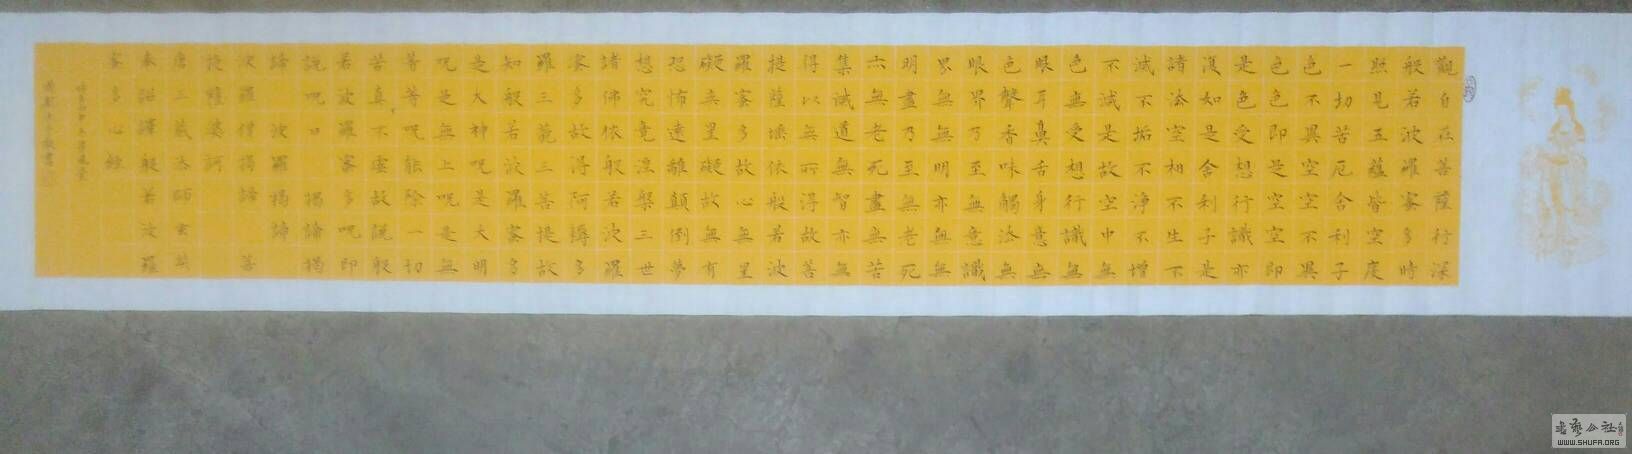 觀自在菩薩行深
般若波羅蜜多時
照見五蘊皆空度
一切苦厄舍利子
色不異空空不異
色色即是空空即
是色受想行識亦
復如是舍利子是
諸法空相不生不
滅不垢不淨不增
不減是故空中無
色無受想行識無
眼耳鼻舌身意無
色聲香味觸法無
眼界乃至無意識
界無無明亦無無
明盡乃至無老死
亦無老死盡無苦
集滅道無智亦無
得以無所得故菩
提薩埵依般若波
羅蜜多故心無罣
礙無罣礙故無有
恐怖遠離顛倒夢
想究竟涅槃三世
諸佛依般若波羅
蜜多故得阿耨多
羅三藐三菩提故
知般若波羅蜜多
是大神呪是大明
呪是無上呪是無
等等呪能除一切
苦真不虛故說般
若波羅蜜多呪即
說呪曰 揭諦揭
諦 波羅揭諦
波羅僧揭諦 菩
提薩婆訶
唐三藏法師玄奘
奉詔譯般若波羅
蜜多心經
WWW.SHUFA.ORG